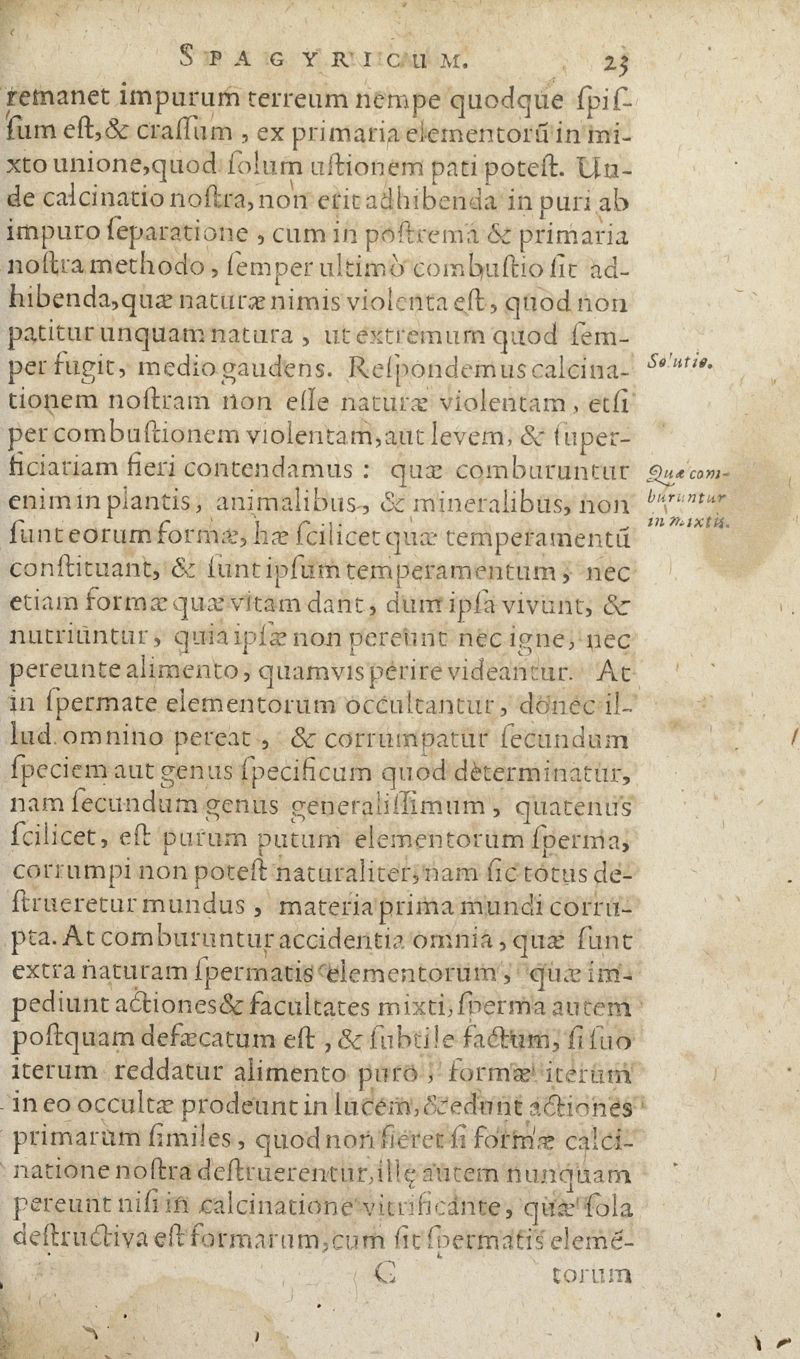 SPAGYRICUM. 23
remanet impurum terreum nempe quodque ſpiſ-
ſum eſt,& craſſum , ex primaria elementorū in mi-
xto unione,quod ſolum uſtionem pati poteſt. Un-
de calcinatio noſtra,non erit adhibenda in puri ab
impuro ſeparatione , cum in poſtrema & primaria
noſtra methodo , ſemper ultimò combuſtio ſit ad-
hibenda,quæ naturæ nimis violenta eſt, quod non
patitur unquam natura , ut extremum quod ſem-
per fugit, medio gaudens. Reſpondemus calcina-
Solutio.
tionem noſtram non eſſe naturæ violentam, etſi
per combuſtionem violentam,aut levem, & ſuper-
ficiariam fieri contendamus : quæ comburuntur
Quæ com-
enim in plantis, animalibus, & mineralibus, non
buruntur
ſunt eorum formæ, hæ ſcilicet quæ temperamentū
in mixtis.
conſtituant, & ſunt ipſum temperamentum, nec
etiam formæ quæ vitam dant, dum ipſa vivunt, &
nutriuntur, quia ipſæ non pereunt nec igne, nec
pereunte alimento, quamvis perire videantur. At
in ſpermate elementorum occultantur, donec il-
lud omnino pereat , & corrumpatur ſecundum
ſpeciem aut genus ſpecificum quod determinatur,
nam ſecundum genus generaliſſimum, quatenus
ſcilicet, eſt purum putum elementorum ſperma,
corrumpi non poteſt naturaliter, nam ſic totus de-
ſtrueretur mundus , materia prima mundi corru-
pta. At comburuntur accidentia omnia , quæ ſunt
extra naturam ſpermatis elementorum, quæ im-
pediunt actiones& facultates mixti,ſperma autem
poſtquam defæcatum eſt , & ſubtile factum, ſi ſuo
iterum reddatur alimento puro , formæ iterum
in eo occultæ prodeunt in lucem,& edunt actiones
primarum ſimiles, quod non fieret ſi formæ calci-
natione noſtra deſtruerentur,illę autem nunquam
pereunt niſi in calcinatione vitrificante, quæ ſola
deſtructiva eſt formarum,cum ſit ſpermatis elemē-
C torum